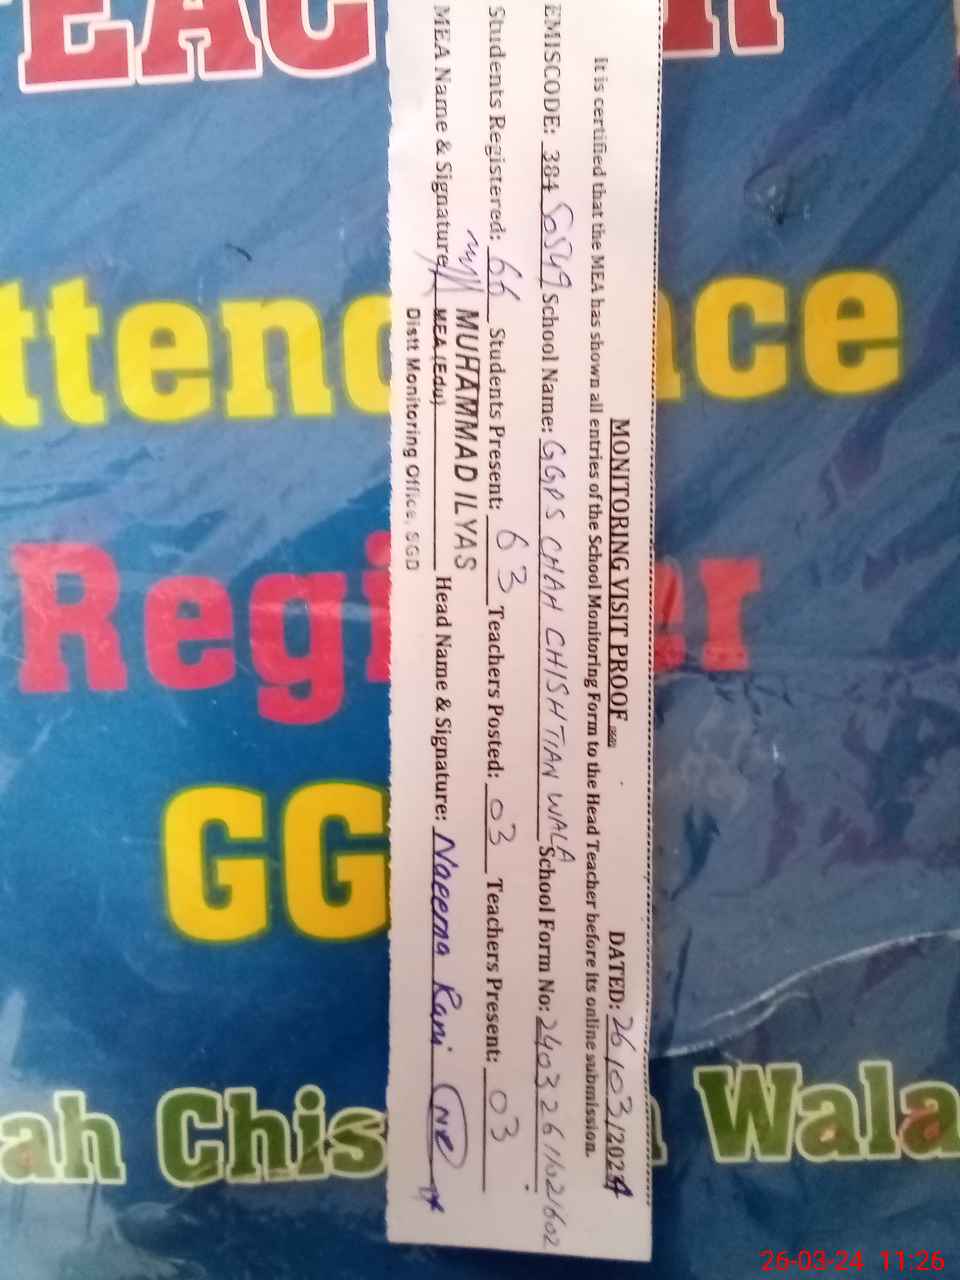 MONITORING VISIT PROOF
DATED: 26/03/2024
It is certified that the MEA has shown all entries of the School Monitoring Form to the Head Teacher before its online submission.
EMISCODE: 384 50549 School Name: GGPS CHAH CHISHTIAN WALA School Form No: 240326
Students Registered: 66 Students Present: 63 Teachers Posted: 03 Teachers Present: 03
MEA Name & Signature MUHAMMAD ILYAS Head Name & Signature: Naeema Rani NR
MEA (Edu)
Distt Monitoring Office, SGD
ttend ce
Reg er
GG
ah Chis Wala
26-03-24 11:26